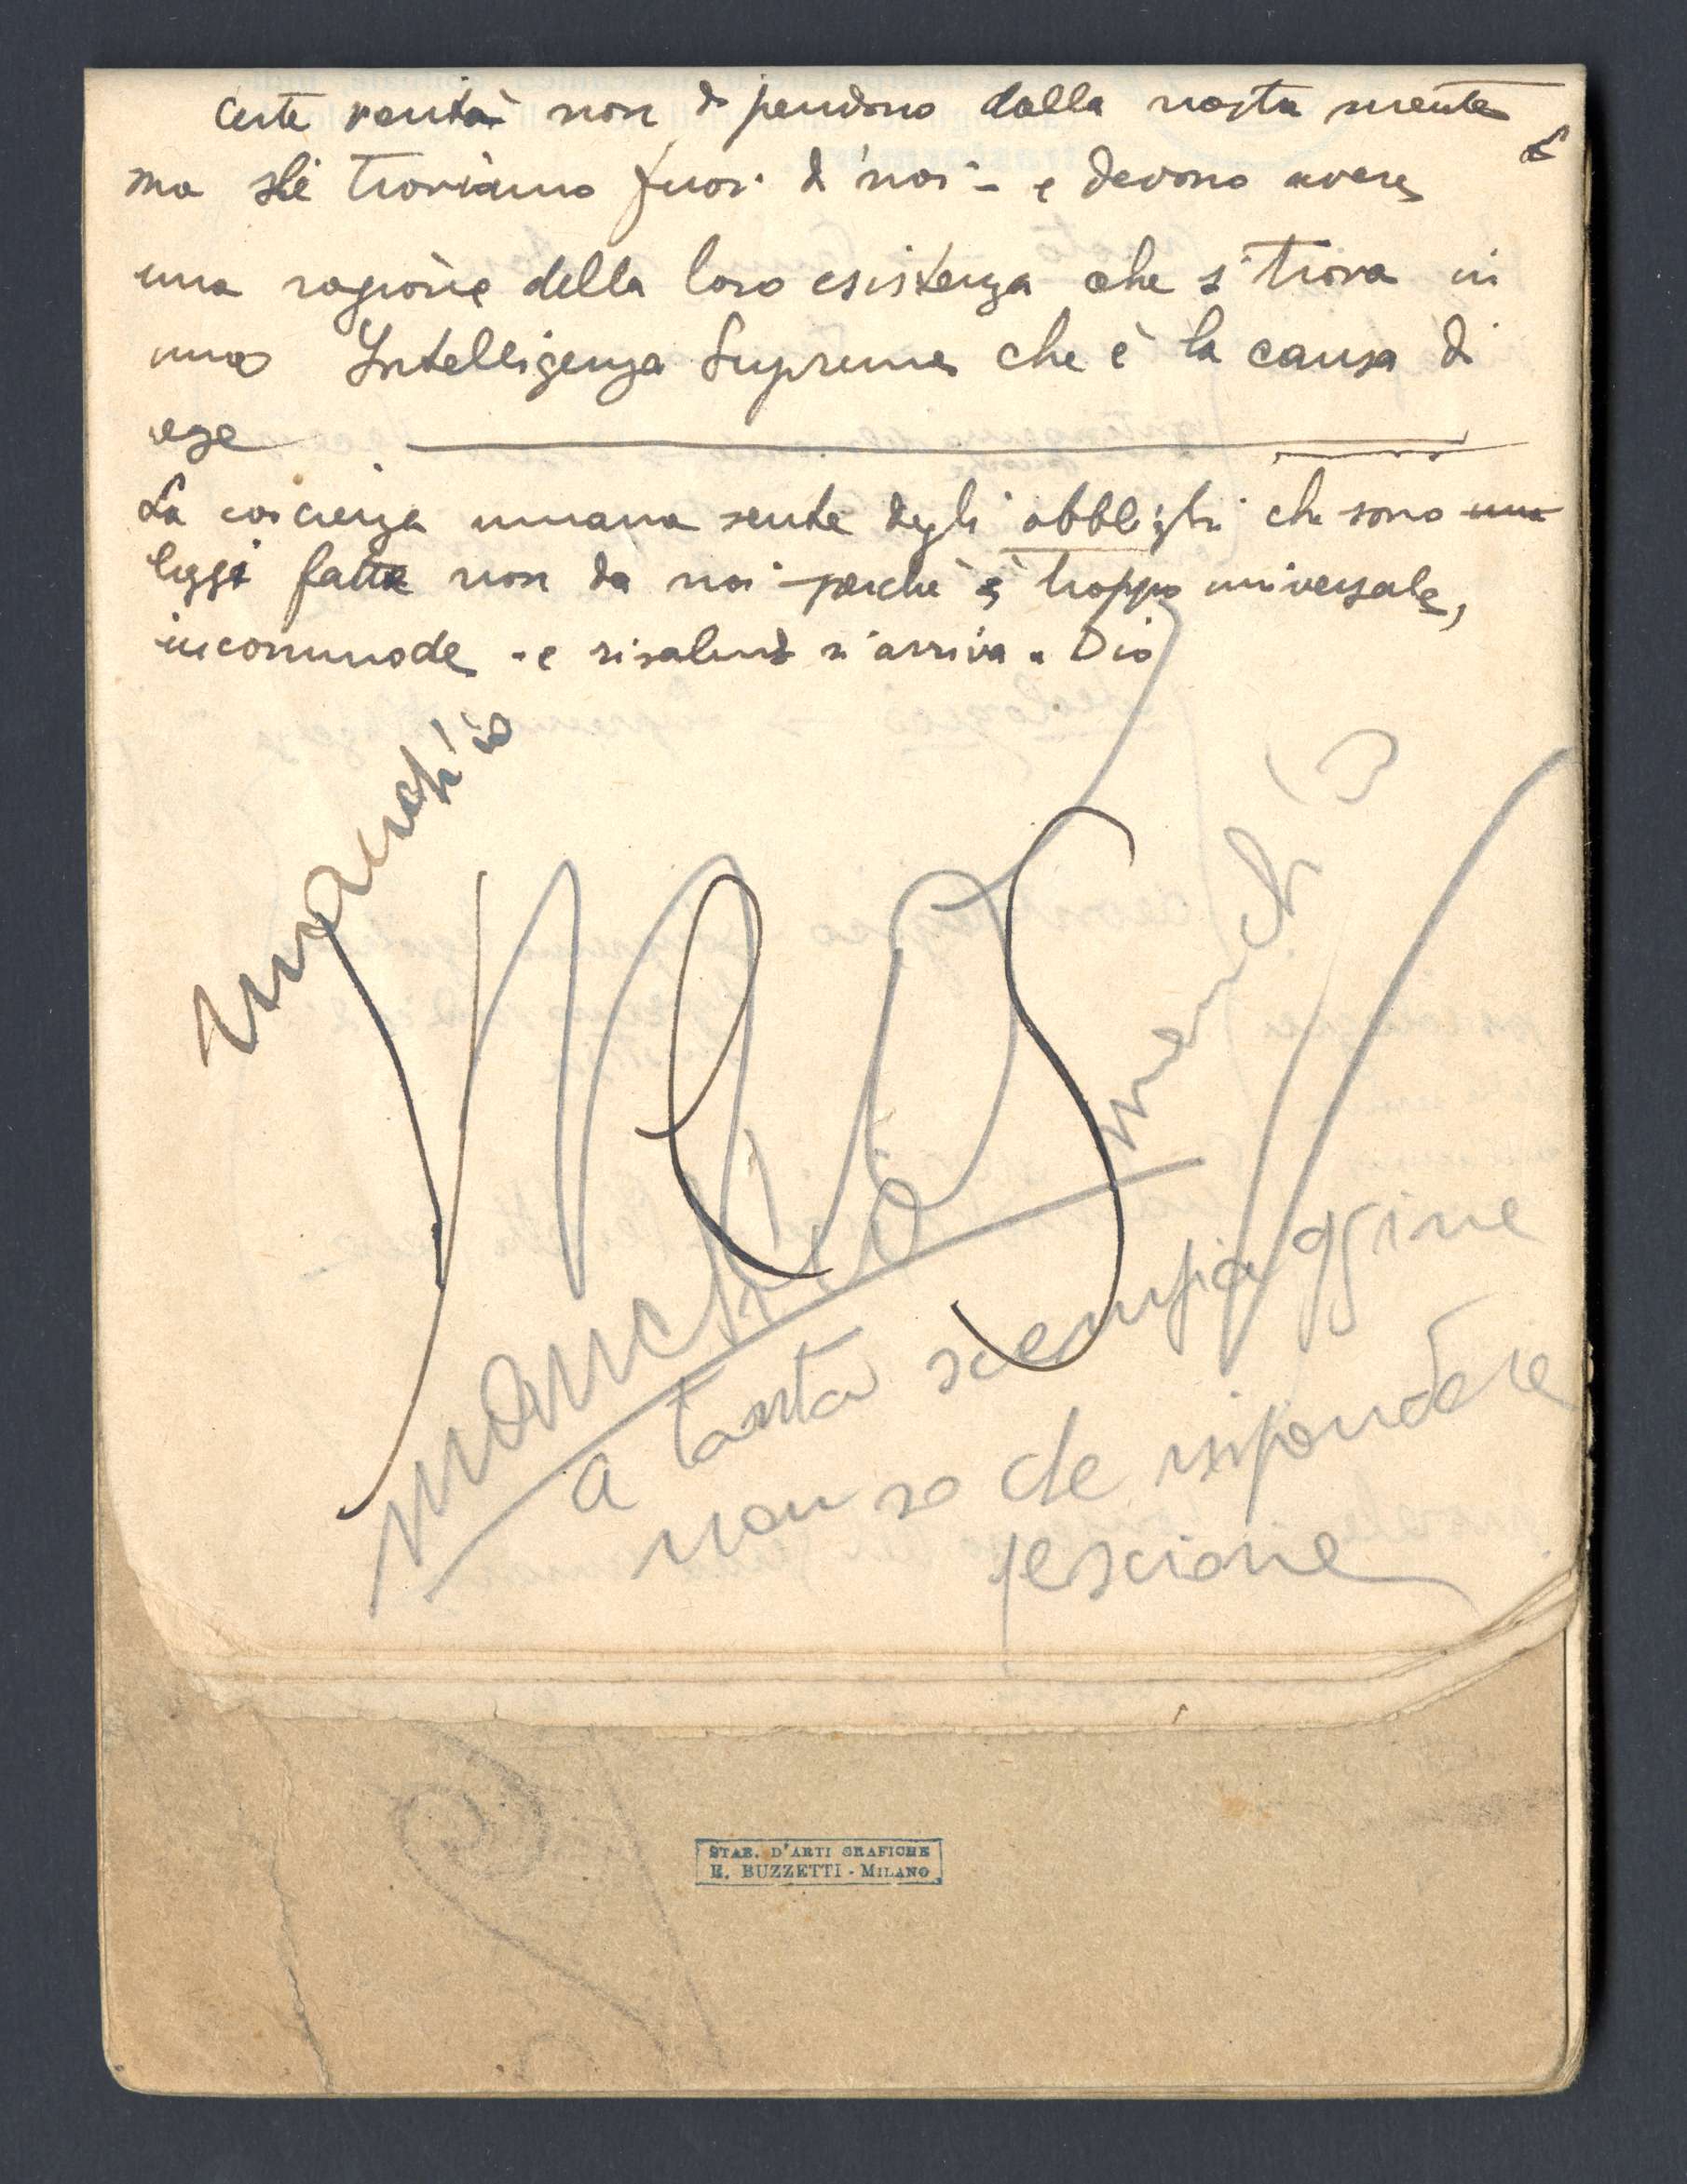 Certe verità non dipendono dalla nostra mente
ma le troviamo fuori di noi - e devono avere
una ragione della loro esistenza che si trova in
una Intelligenza Suprema che è la causa di
esse
La coscienza umana sente degli obblighi che sono una
leggi fatte non da noi perché è troppo universale,
incommode - e risalendo si arriva a Dio
manch'io
manch'io
manch'io
a tanta scempiaggine
non so che rispondere
pescione
STAB. D'ARTI GRAFICHE
E. BUZZETTI - MILANO